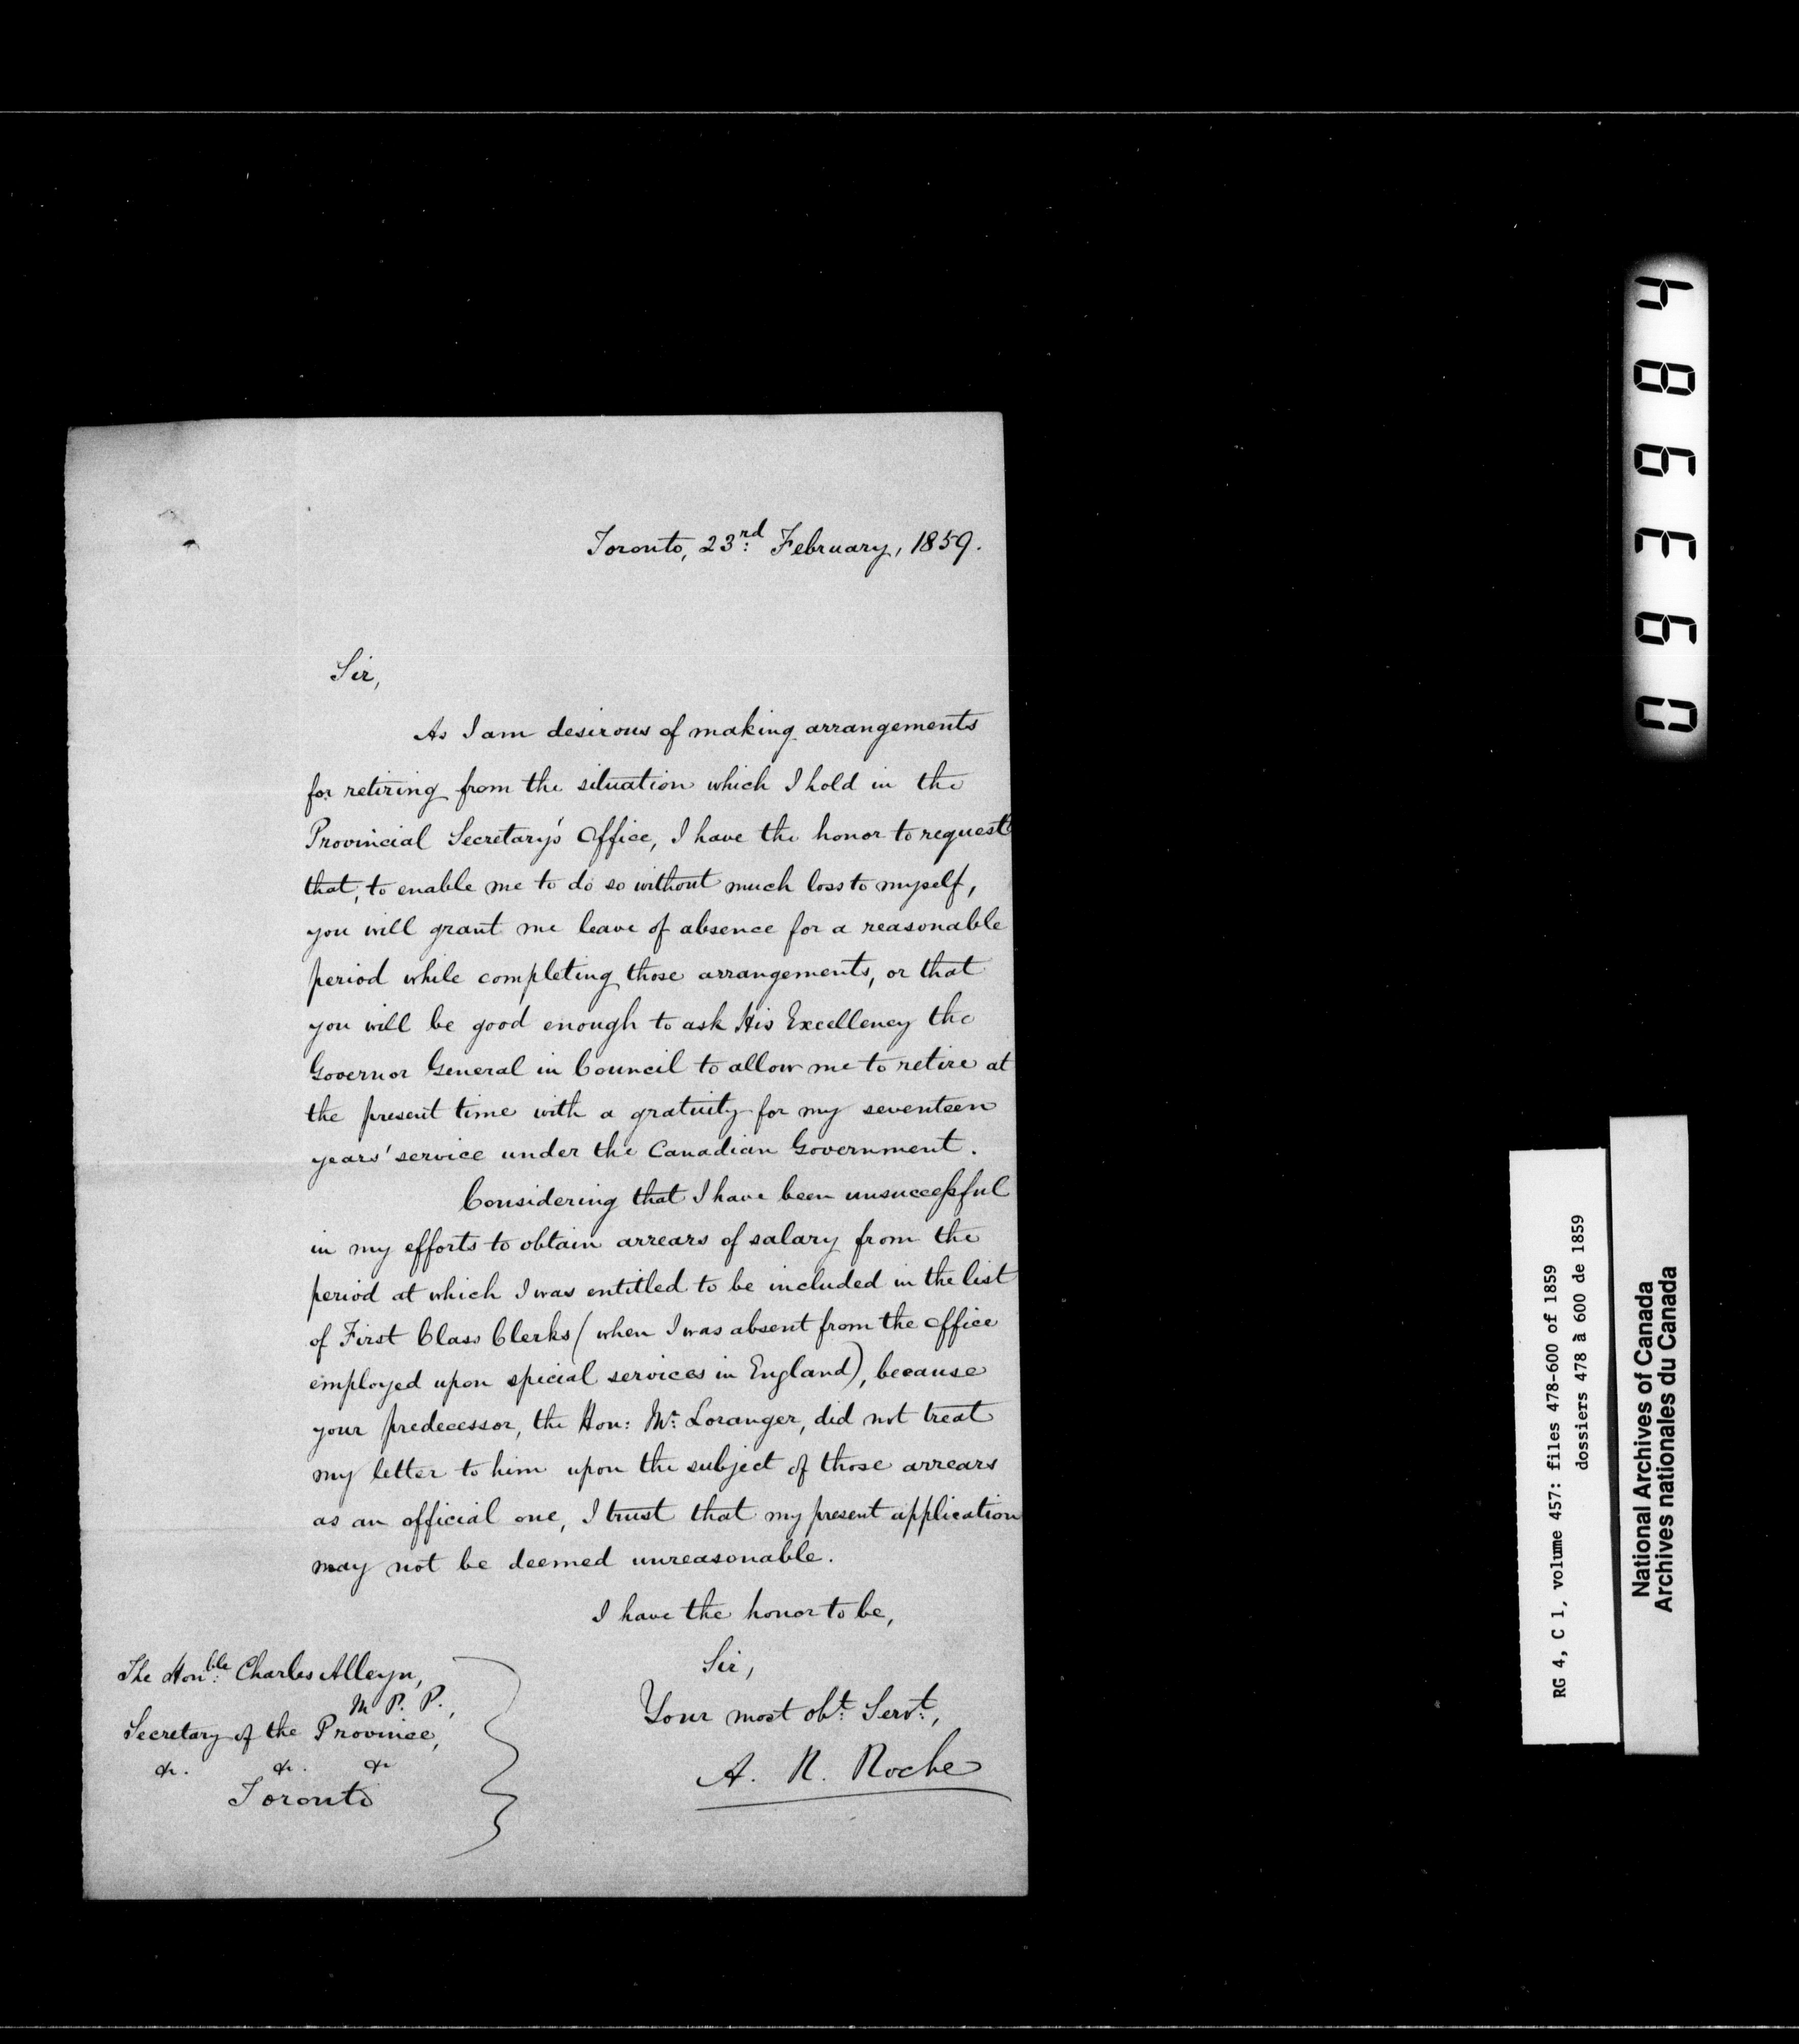 Toronto, 23rd: February, 1859.
Sir,
As I am desirous of making arrangements
for retiring from the situation which I hold in the
Provincial Secretary's Office, I have the honor to request
that, to enable me to do so without much loss to myself,
you will grant me leave of absence for a reasonable
period while completing those arrangements, or that
you will be good enough to ask His Excellency the
Governor General in Council to allow me to retire at
the present time with a gratuity for my seventeen
years' service under the Canadian Government.
Considering that I have been unsuccessful
in my efforts to obtain arrears of salary from the
period at which I was entitled to be included in the list
of First Class Clerks (when I was absent from the office
employed upon special services in England), because
your predecessor, the Hon: Mr: Loranger, did not treat
my letter to him upon the subject of those arrears
as an official one, I trust that my present application
may not be deemed unreasonable.
I have the honor to be,
Sir,
Your most obt: Servt:,
A. R. Roche
The Honble: Charles Alleyn,
M P. P.,
Secretary of the Province,
&. &. &
Toronto
063984
RG 4, C 1, volume 457: files 478-600 of 1859
dossiers 478 à 600 de 1859
National Archives of Canada
Archives nationales du Canada